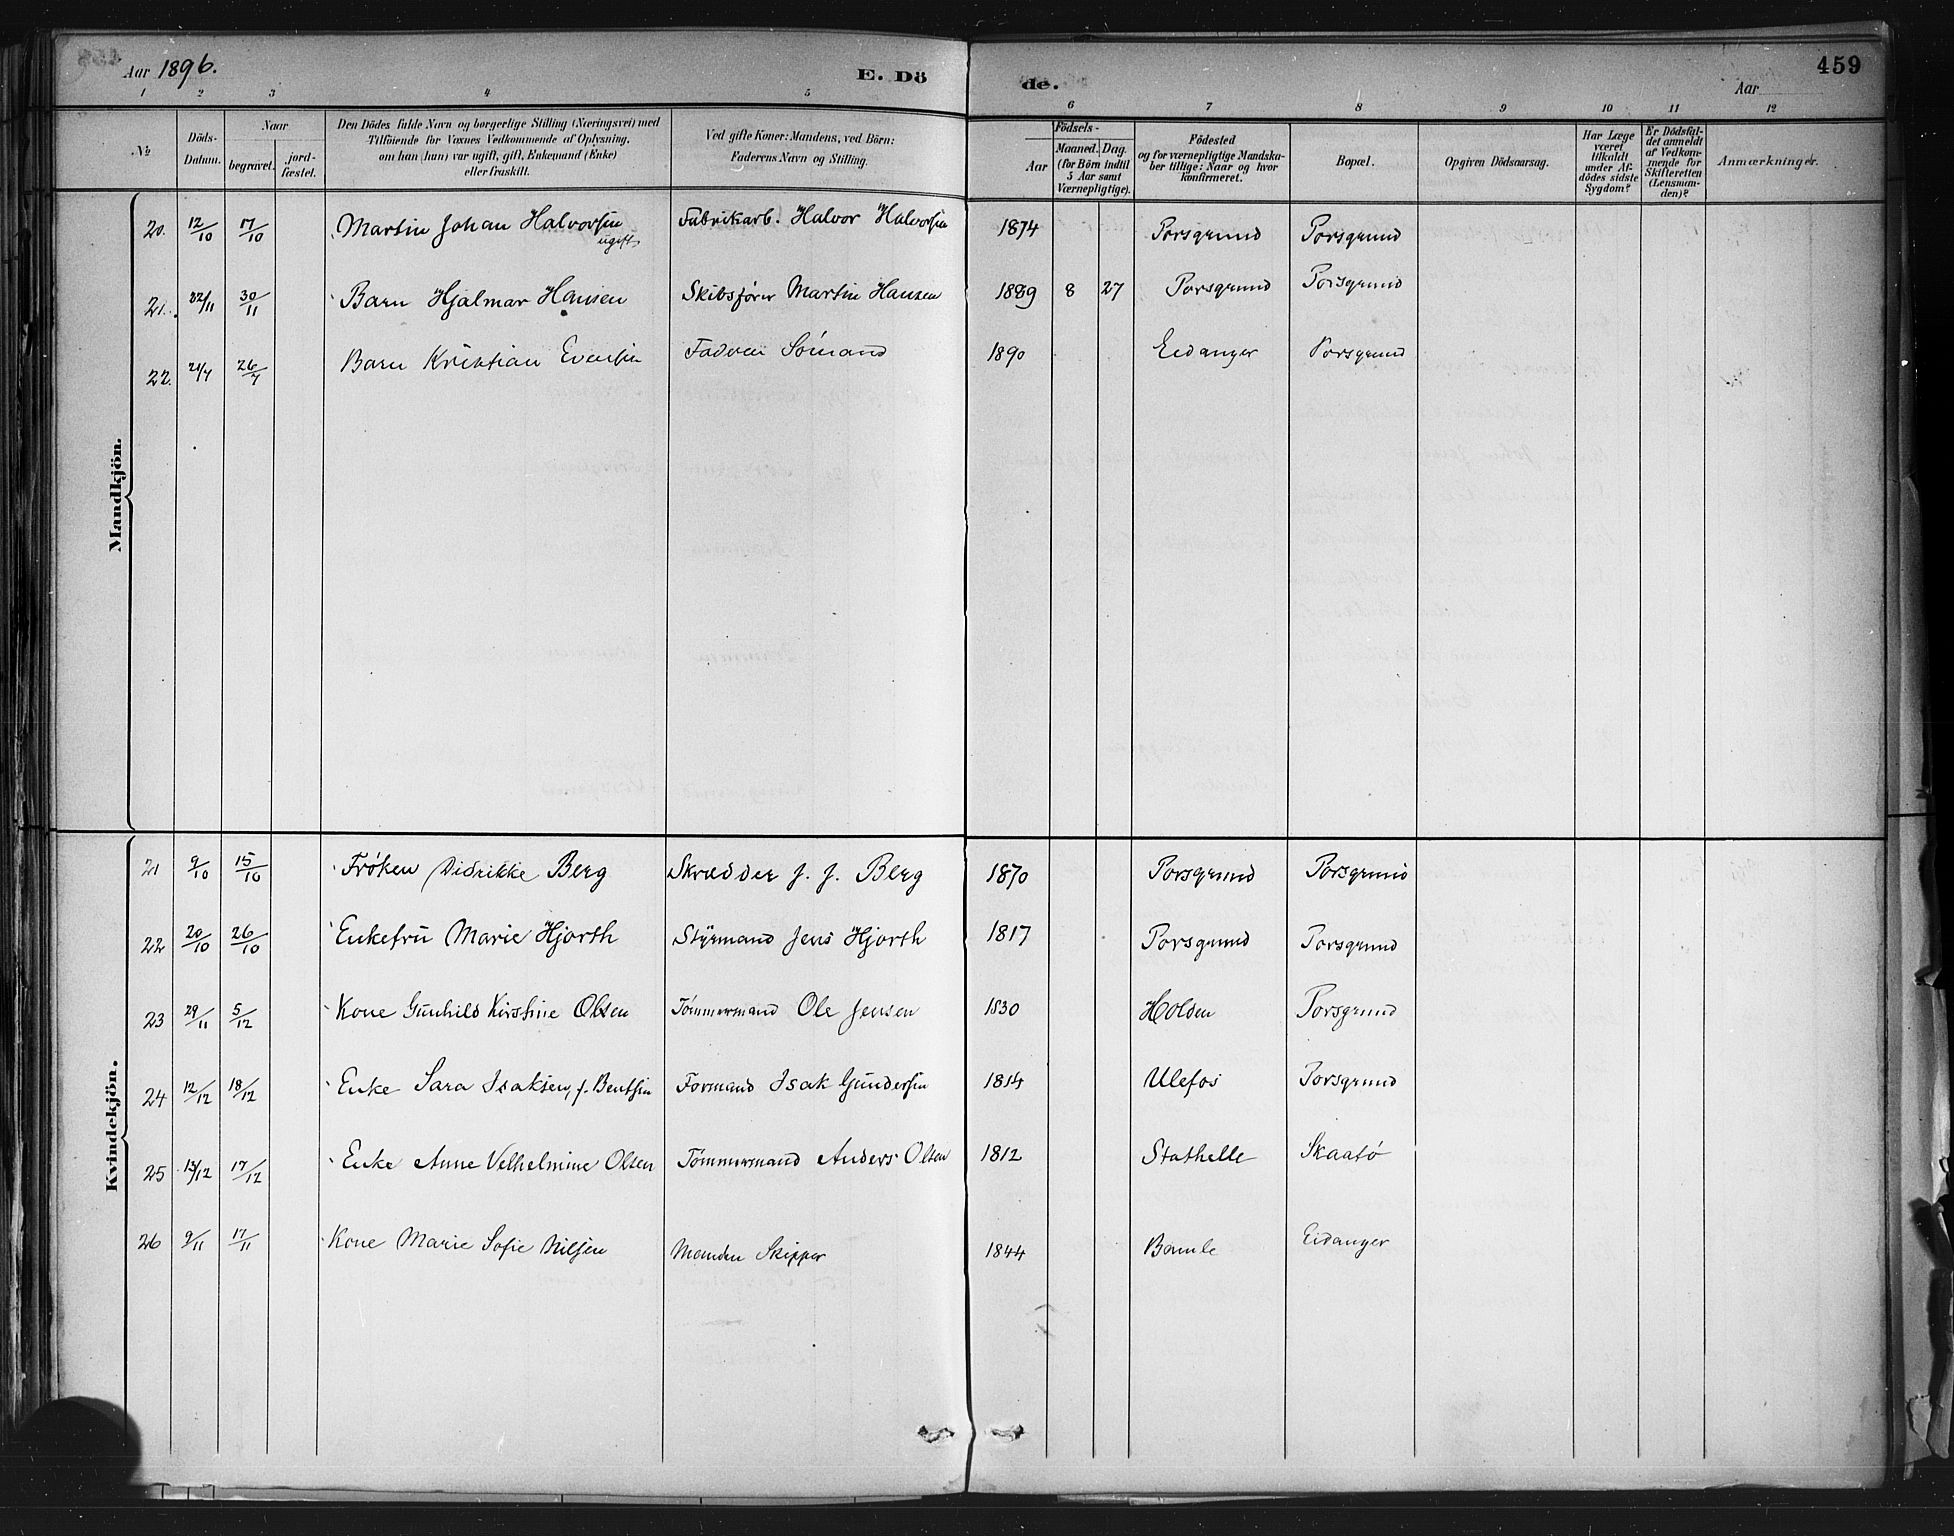 Aar 1896. E. Dö de. Aar 459
1 2 3 4 5 6 7 8 9 10 11 12
No Döds-Datum. Naar begravet. jord-fæstet. Den Dödes fulde Navn og borgerlige Stilling (Næringsvei) med Tilföiende for Voxnes Vedkommende af Oplysning, om han (hun) var ugift, gift, Enkemand (Enke) eller fraskilt. Ved gifte Koner: Mandens, ved Börn: Faderens Navn og Stilling. Födsels- Aar Maaned. Dag. (for Börn indtil 5 Aar samt Værnepligtige). Födested og for værnepligtige Mandskaber tillige: Naar og hvor konfirmeret. Bopæl. Opgiven Dödsaarsag. Har Læge været tilkaldt under Afdödes sidste Sygdom? Er Dödsfaldet anmeldt af Vedkommende for Skifteretten (Lensmanden)? Anmærkninger.
Mandkjön.
20. 12/10 17/10 Martin Johan Halvorsen ugift Fabrikarb. Halvor Halvorsen 1874 Porsgrund Porsgrund
21. 22/11 30/11 Barn Hjalmar Hansen Skibsfører Martin Hansen 1889 8 27 Porsgrund Porsgrund
22. 21/7 26/7 Barn Kristian Evensen Faderen Sömand 1890 Eidanger Porsgrund
Kvindekjön.
21 9/10 15/10 Frøken Didrikke Berg Skrædder J. J. Berg 1870 Porsgrund Porsgrund
22 20/10 26/10 Enkefru Marie Hjorth Styrmand Jens Hjorth 1817 Porsgrund Porsgrund
23 29/11 5/12 Kone Gunhild Kirstine Olsen Tømmermand Ole Jensen 1830 Holden Porsgrund
24 12/12 18/12 Enke Sara Isaksen, f. Bentsen Formand Isak Gundersen 1814 Ulefos Porsgrund
25 13/12 17/12 Enke Anne Velhelmine Olsen Tømmermand Anders Olsen 1812 Stathelle Skaatø
26 9/11 17/11 Kone Marie Sofie Nilsen Manden Skipper 1844 Bamle Eidanger